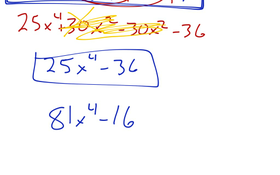 25x⁴+30x²-30x²-36
25x⁴-36
81x⁴-16